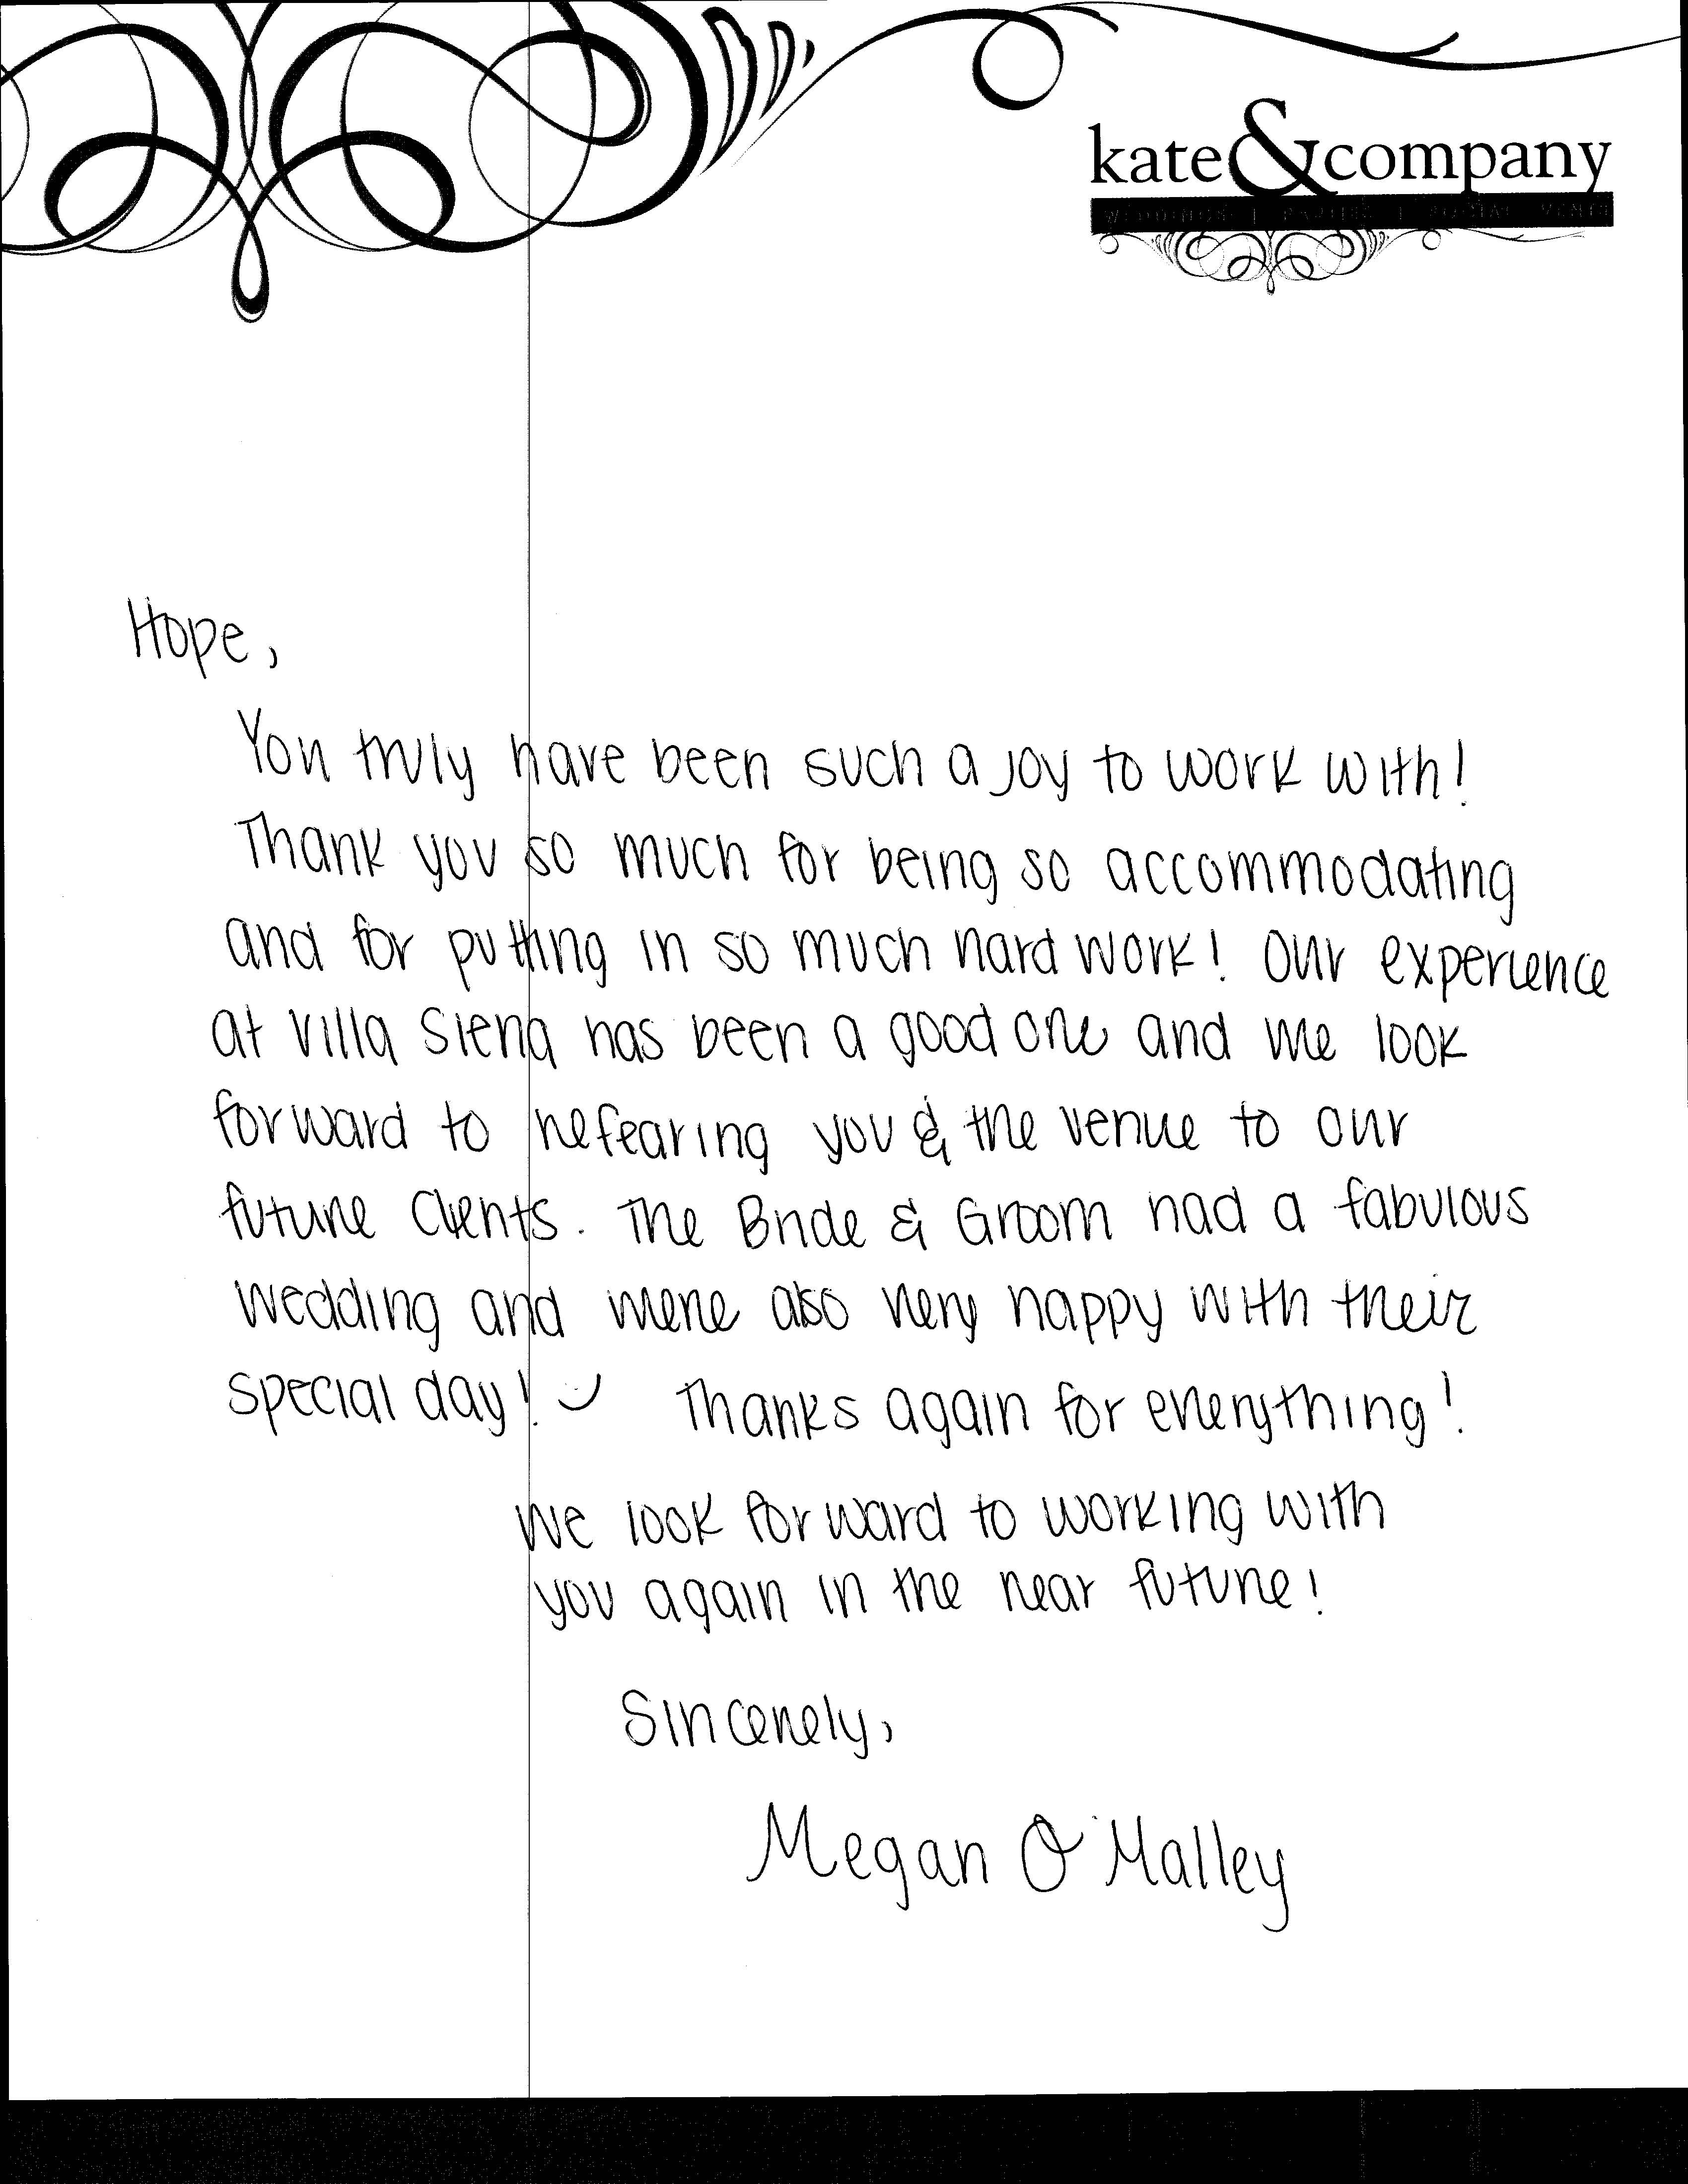 kate&company
WEDDINGS | PARTIES | SOCIAL EVENTS
Hope,
You truly have been such a joy to work with!
Thank you so much for being so accommodating
and for putting in so much hard work! Our experience
at Villa Siena has been a good one and we look
forward to refearing you & the venue to our
future clients. The Bride & Groom had a fabulous
wedding and were also very happy with their
special day! Thanks again for everything!
We look forward to working with
you again in the near future!
Sincerely,
Megan O'Malley